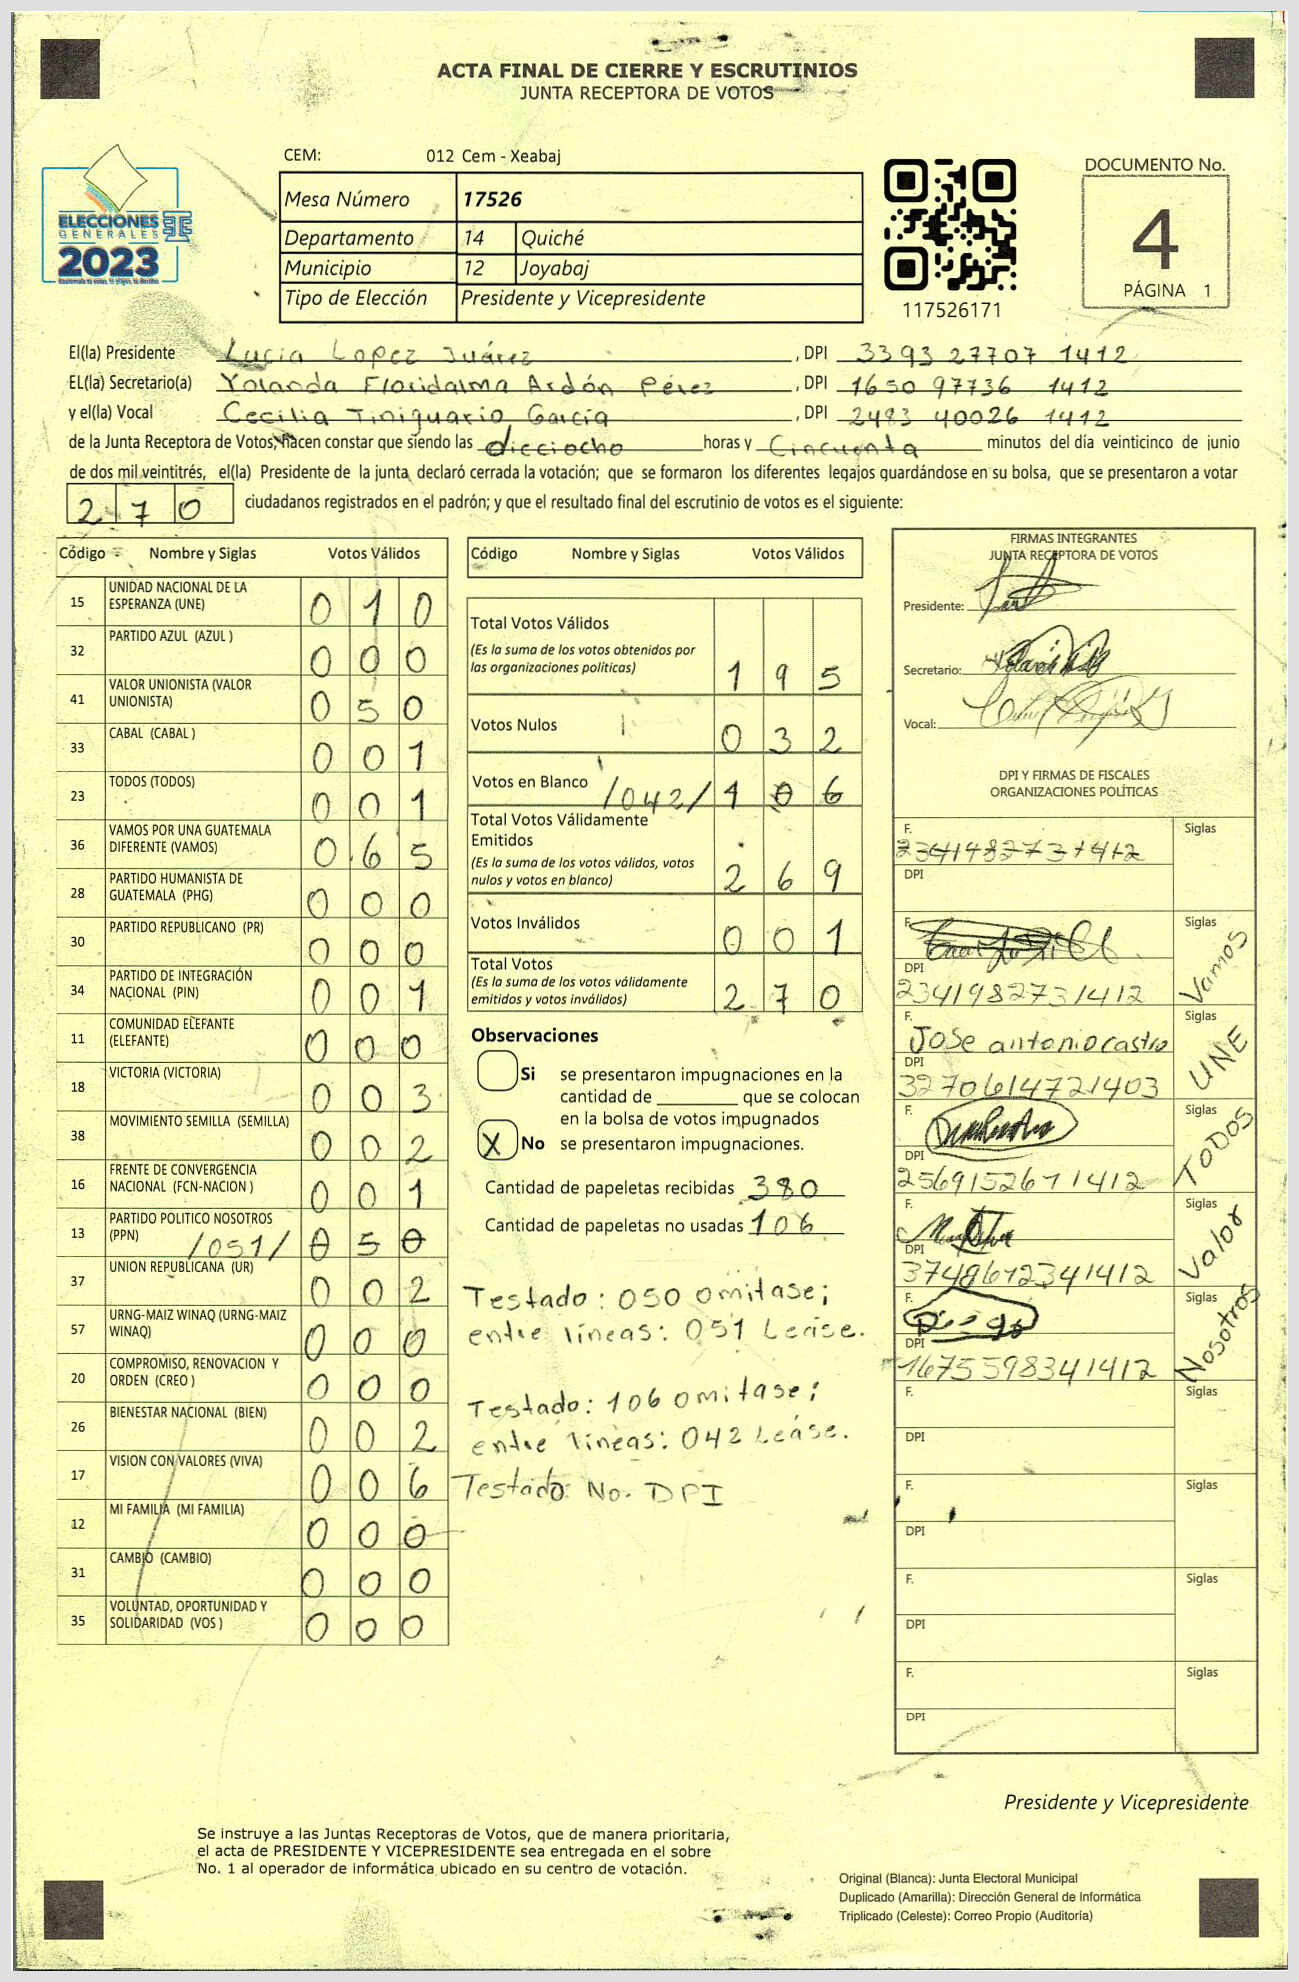 ACTA FINAL DE CIERRE Y ESCRUTINIOS
JUNTA RECEPTORA DE VOTOS
CEM: 012 Cem - Xeabaj
ELECCIONES
GENERALES
2023
Mesa Número 17526
Departamento 14 Quiché
Municipio 12 Joyabaj
Tipo de Elección Presidente y Vicepresidente
117526171
DOCUMENTO No.
4
PÁGINA 1
El(la) Presidente Lucia Lopez Juárez , DPI 3393 27707 1412
EL(la) Secretario(a) Yolanda Floridalma Ardón Pérez , DPI 1650 97736 1412
y el(la) Vocal Cecilia Tiniguario García , DPI 2483 40026 1412
de la Junta Receptora de Votos, hacen constar que siendo las dieciocho horas y Cincuenta minutos del día veinticinco de junio
de dos mil veintitrés, el(la) Presidente de la junta declaró cerrada la votación; que se formaron los diferentes legajos guardándose en su bolsa, que se presentaron a votar
270 ciudadanos registrados en el padrón; y que el resultado final del escrutinio de votos es el siguiente:
Código Nombre y Siglas Votos Válidos
15 UNIDAD NACIONAL DE LA ESPERANZA (UNE) 0 1 0
32 PARTIDO AZUL (AZUL ) 0 0 0
41 VALOR UNIONISTA (VALOR UNIONISTA) 0 5 0
33 CABAL (CABAL ) 0 0 1
23 TODOS (TODOS) 0 0 1
36 VAMOS POR UNA GUATEMALA DIFERENTE (VAMOS) 0 6 5
28 PARTIDO HUMANISTA DE GUATEMALA (PHG) 0 0 0
30 PARTIDO REPUBLICANO (PR) 0 0 0
34 PARTIDO DE INTEGRACIÓN NACIONAL (PIN) 0 0 1
11 COMUNIDAD ELEFANTE (ELEFANTE) 0 0 0
18 VICTORIA (VICTORIA) 0 0 3
38 MOVIMIENTO SEMILLA (SEMILLA) 0 0 2
16 FRENTE DE CONVERGENCIA NACIONAL (FCN-NACION ) 0 0 1
13 PARTIDO POLITICO NOSOTROS (PPN) /051/ 0 5 0
37 UNION REPUBLICANA (UR) 0 0 2
57 URNG-MAIZ WINAQ (URNG-MAIZ WINAQ) 0 0 0
20 COMPROMISO, RENOVACION Y ORDEN (CREO ) 0 0 0
26 BIENESTAR NACIONAL (BIEN) 0 0 2
17 VISION CON VALORES (VIVA) 0 0 6
12 MI FAMILIA (MI FAMILIA) 0 0 0
31 CAMBIO (CAMBIO) 0 0 0
35 VOLUNTAD, OPORTUNIDAD Y SOLIDARIDAD (VOS ) 0 0 0
Código Nombre y Siglas Votos Válidos
Total Votos Válidos
(Es la suma de los votos obtenidos por
las organizaciones políticas) 1 9 5
Votos Nulos 0 3 2
Votos en Blanco /042/ 1 0 6
Total Votos Válidamente
Emitidos
(Es la suma de los votos válidos, votos
nulos y votos en blanco) 2 6 9
Votos Inválidos 0 0 1
Total Votos
(Es la suma de los votos válidamente
emitidos y votos inválidos) 2 7 0
Observaciones
Si se presentaron impugnaciones en la
cantidad de ________ que se colocan
en la bolsa de votos impugnados
X No se presentaron impugnaciones.
Cantidad de papeletas recibidas 380
Cantidad de papeletas no usadas 106
Testado: 050 omitase;
entre líneas: 051 Lease.
Testado: 106 omitase;
entre líneas: 042 Léase.
Testado: No. DPI
FIRMAS INTEGRANTES
JUNTA RECEPTORA DE VOTOS
Presidente:
Secretario:
Vocal:
DPI Y FIRMAS DE FISCALES
ORGANIZACIONES POLÍTICAS
F. 2341982731412 Siglas
DPI
F. Siglas Vamos
DPI 2341982731412
F. Jose antonio castro Siglas UNE
DPI 3270614721403
F. Siglas TODOS
DPI 2569152671412
F. Siglas Valor
DPI 3748612341412
F. Siglas Nosotros
DPI 1675598341412
F. Siglas
DPI
F. Siglas
DPI
F. Siglas
DPI
F. Siglas
DPI
Presidente y Vicepresidente
Se instruye a las Juntas Receptoras de Votos, que de manera prioritaria,
el acta de PRESIDENTE Y VICEPRESIDENTE sea entregada en el sobre
No. 1 al operador de informática ubicado en su centro de votación.
Original (Blanca): Junta Electoral Municipal
Duplicado (Amarilla): Dirección General de Informática
Triplicado (Celeste): Correo Propio (Auditoría)